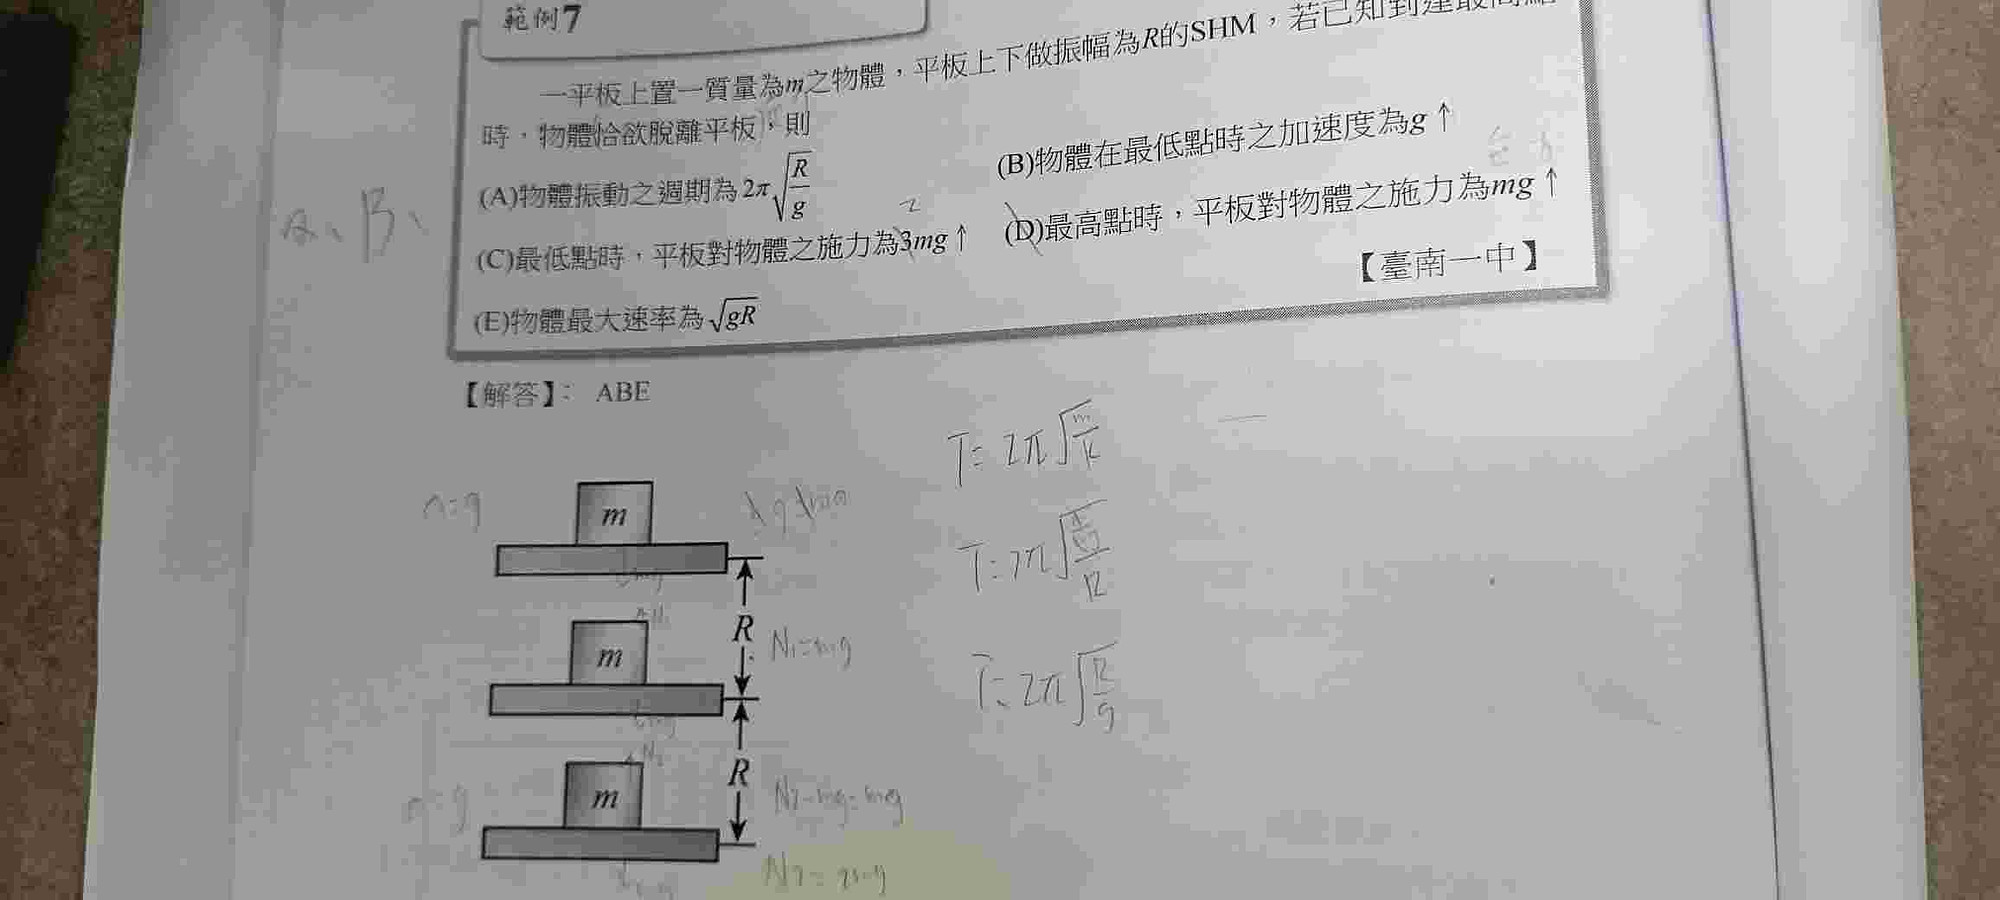 範例7
一平板上置一質量為m之物體，平板上下做振幅為R的SHM，若已知到達最高點
時，物體恰欲脫離平板，則
(A)物體振動之週期為2π√(R/g)
(B)物體在最低點時之加速度為g↑
(C)最低點時，平板對物體之施力為3mg↑
2
(D)最高點時，平板對物體之施力為mg↑
(E)物體最大速率為√gR
【臺南一中】
【解答】： ABE
T = 2π√(m/k)
m
R
N₁=mg
T = 2π√(R/g)
m
R
N₂-mg=mg
m
N₂=2mg